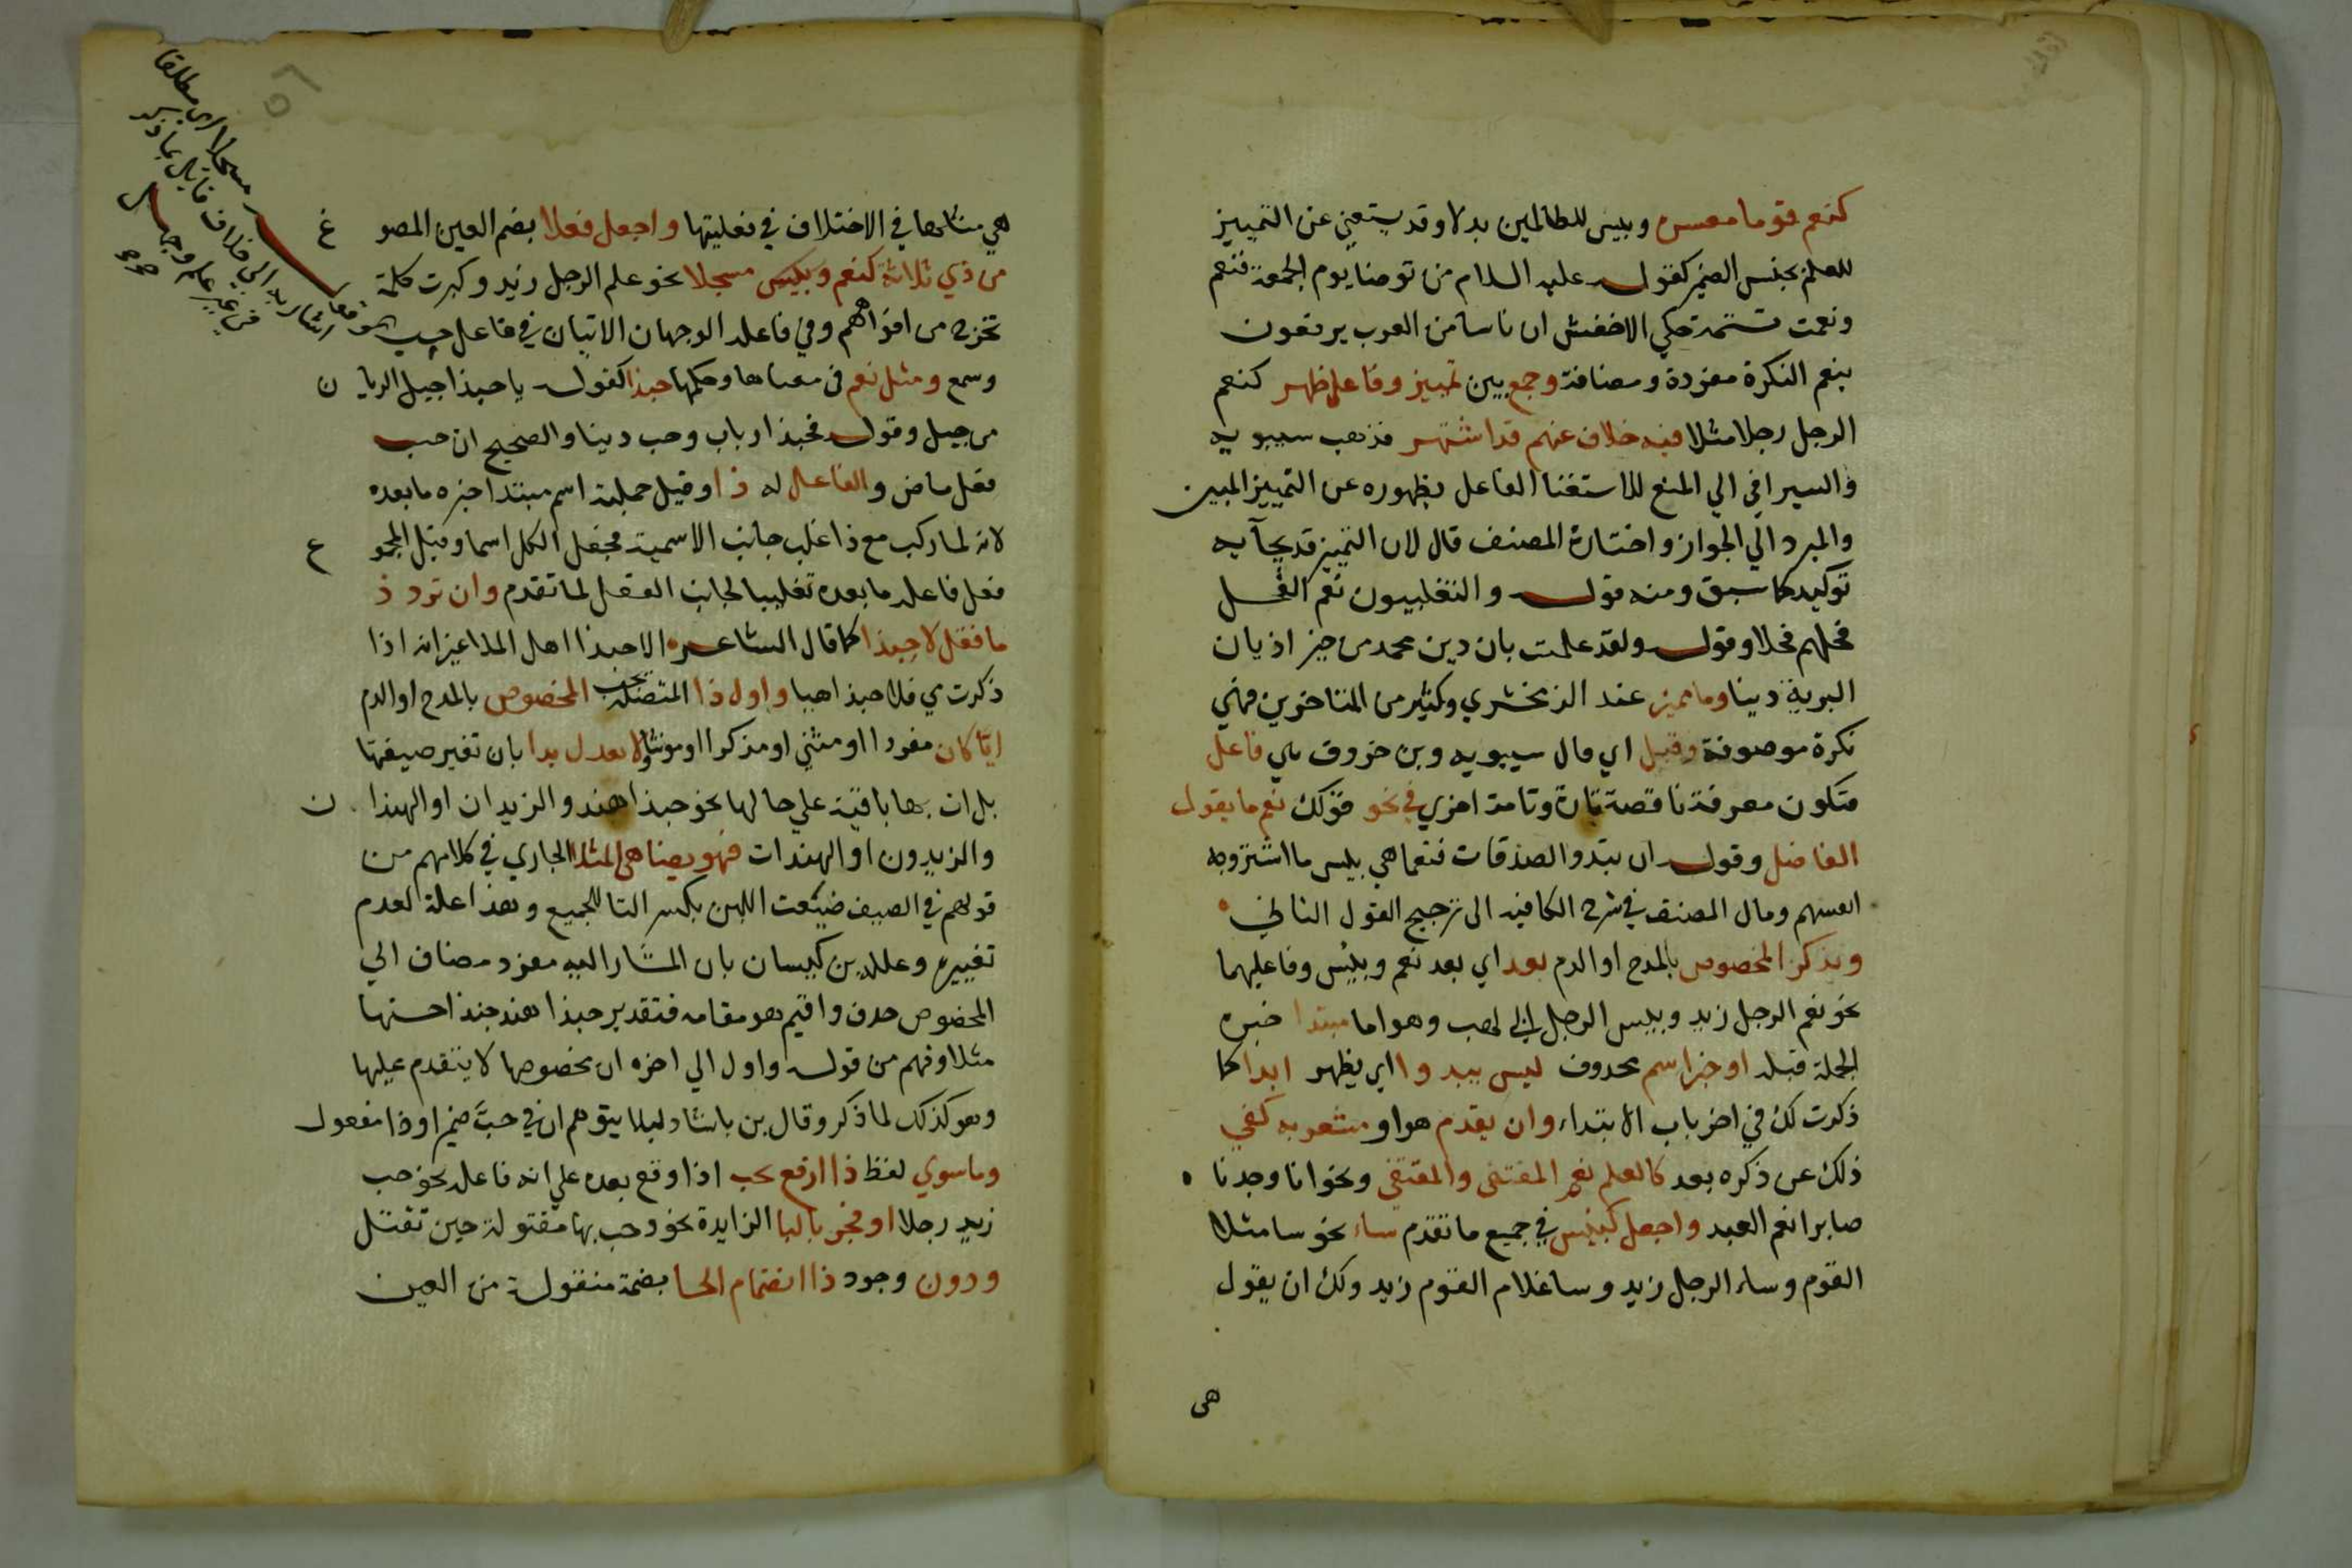 كنعم قوما معسره وبيس للظالمين بدلا وقد يستغني عن التمييز
للعلم بجنس الضمير كقوله عليه السلام من توضا يوم الجمعة فنعم
ونعمت تتمة حكي الاخفش ان ناسا من العرب يرفعون
بنعم النكرة مفردة ومضافة وجمع بين تمييز وفاعل ظهر كنعم
الرجل رجلا مثلا فيه خلاف عنهم قد اشتهر فذهب سيبويه
والسيرافي الي المنع للاستغنا الفاعل بظهوره عن التمييز المبين
والمبرد الي الجواز واختارة المصنف قال لان التمييز قد يجآ به
توكيدا كما سبق ومنه قوله والتغلبيون نعم الفحل
فحلهم فحلا وقوله ولقد علمت بان دين محمد من خيز اديان
البرية دينا وما مميز عند الزمخشري وكثير من المتاخرين فهي
نكرة موصوفة وقيل اي قال سيبويه وبن خروف هي فاعل
فتكون معرفة ناقصة تارة وتامة اخري في نحو قولك نعم ما يقول
الفاضل وقوله ان تبدو الصدقات فنعما هي بليس ما اشتروبه
انفسهم ومال المصنف في شرح الكافيه الى ترجيح القول الثاني
ويذكر المخصوص بالمدح او الدم بعد اي بعد نعم وبيس وفاعليهما
نحو نعم الرجل زيد وبيس الرجل ابي لهب وهو اما مبتدا خبره
الجملة قبله او خبر اسم محدوف ليس يبدوا اي يظهر ابدا كما
ذكرت لك في اخر باب الابتداء وان يقدم هو او مشعر به كفي
ذلك عن ذكره بعد كالعلم نعم المقتنى والمقتفى ونحو انا وجدنا
صابرا نعم العبد واجعل كبئيس في جميع ما تقدم ساء نحو سا مثلا
القوم وساء الرجل زيد وسا غلام القوم زيد ولك ان يقول
هى
هي مثلها في الاختلاف في فعليتها واجعل فعلا بضم العين المصو غ
من ذي ثلاثة كنعم وبكيس مسجلا نحو علم الرجل زيد وكبرت كلمة
تخرج من افواههم وفي فاعله الوجهان الاتيان في فاعل حب
وسمع ومثل نعم في معناها وحكمها حبذا كقوله يا حبذا جبل الريا ن
من جبل وقوله فحبذا ربا وحب دينا والصحيح ان حب
فعل ماض والفاعل له ذا وقيل جملية اسم مبتدا خبره مابعده
لانه لما ركب مع ذا غلب جانب الاسمية فجعل الكل اسما وقيل المجمو ع
فعل فاعله ما بعده تغليبا لجانب الفعل لما تقدم وان ترد ذ
ما فقل لا حبذا كما قال الشاعره الا حبذا اهل الملا غير انه اذا
ذكرت مي فلا حبذا هيا واول ذا المتصلة بحب المخصوص بالمدح او الدم
ايّا كان مفردا او مثني او مذكرا او مونثا ولا تعدل بدا بان تغير صيغتها
بل ات بها باقية علي حالها نحو حبذا هند والزيدان او الهندا ن
والزيدون او الهندات فهو يضاهى المثلا الجاري في كلامهم من
قولهم في الصيف ضيّعت اللبن بكسر التا للجميع وهذا علة العدم
تغييره وعلله بن كيسان بان المشار اليه مفرد مضاف الي
المخصوص حدف واقيم هو مقامه فتقدير حبذا هند حبذا حسنها
مثلا وفهم من قوله واول الي اخره ان مخصوصها لا يتقدم عليها
وهو كذلك لما ذكر وقال بن بابشاد ليلا يتوهم ان في حبّ ضميرا وذا مفعول
وما سوي لفظ ذا ارفع بحب اذا وقع بعده علي انه فاعله نحو حب
زيد رجلا او فجر بالبا الزايدة نحو وحب بها مقتولة حين تقتل
ودون وجود ذا انضمام الحا بضمة منقولة من العين
مسجلا اى مطلقا
اشار به الي خلاف قايل بما ذكر
في غير علم وجهل